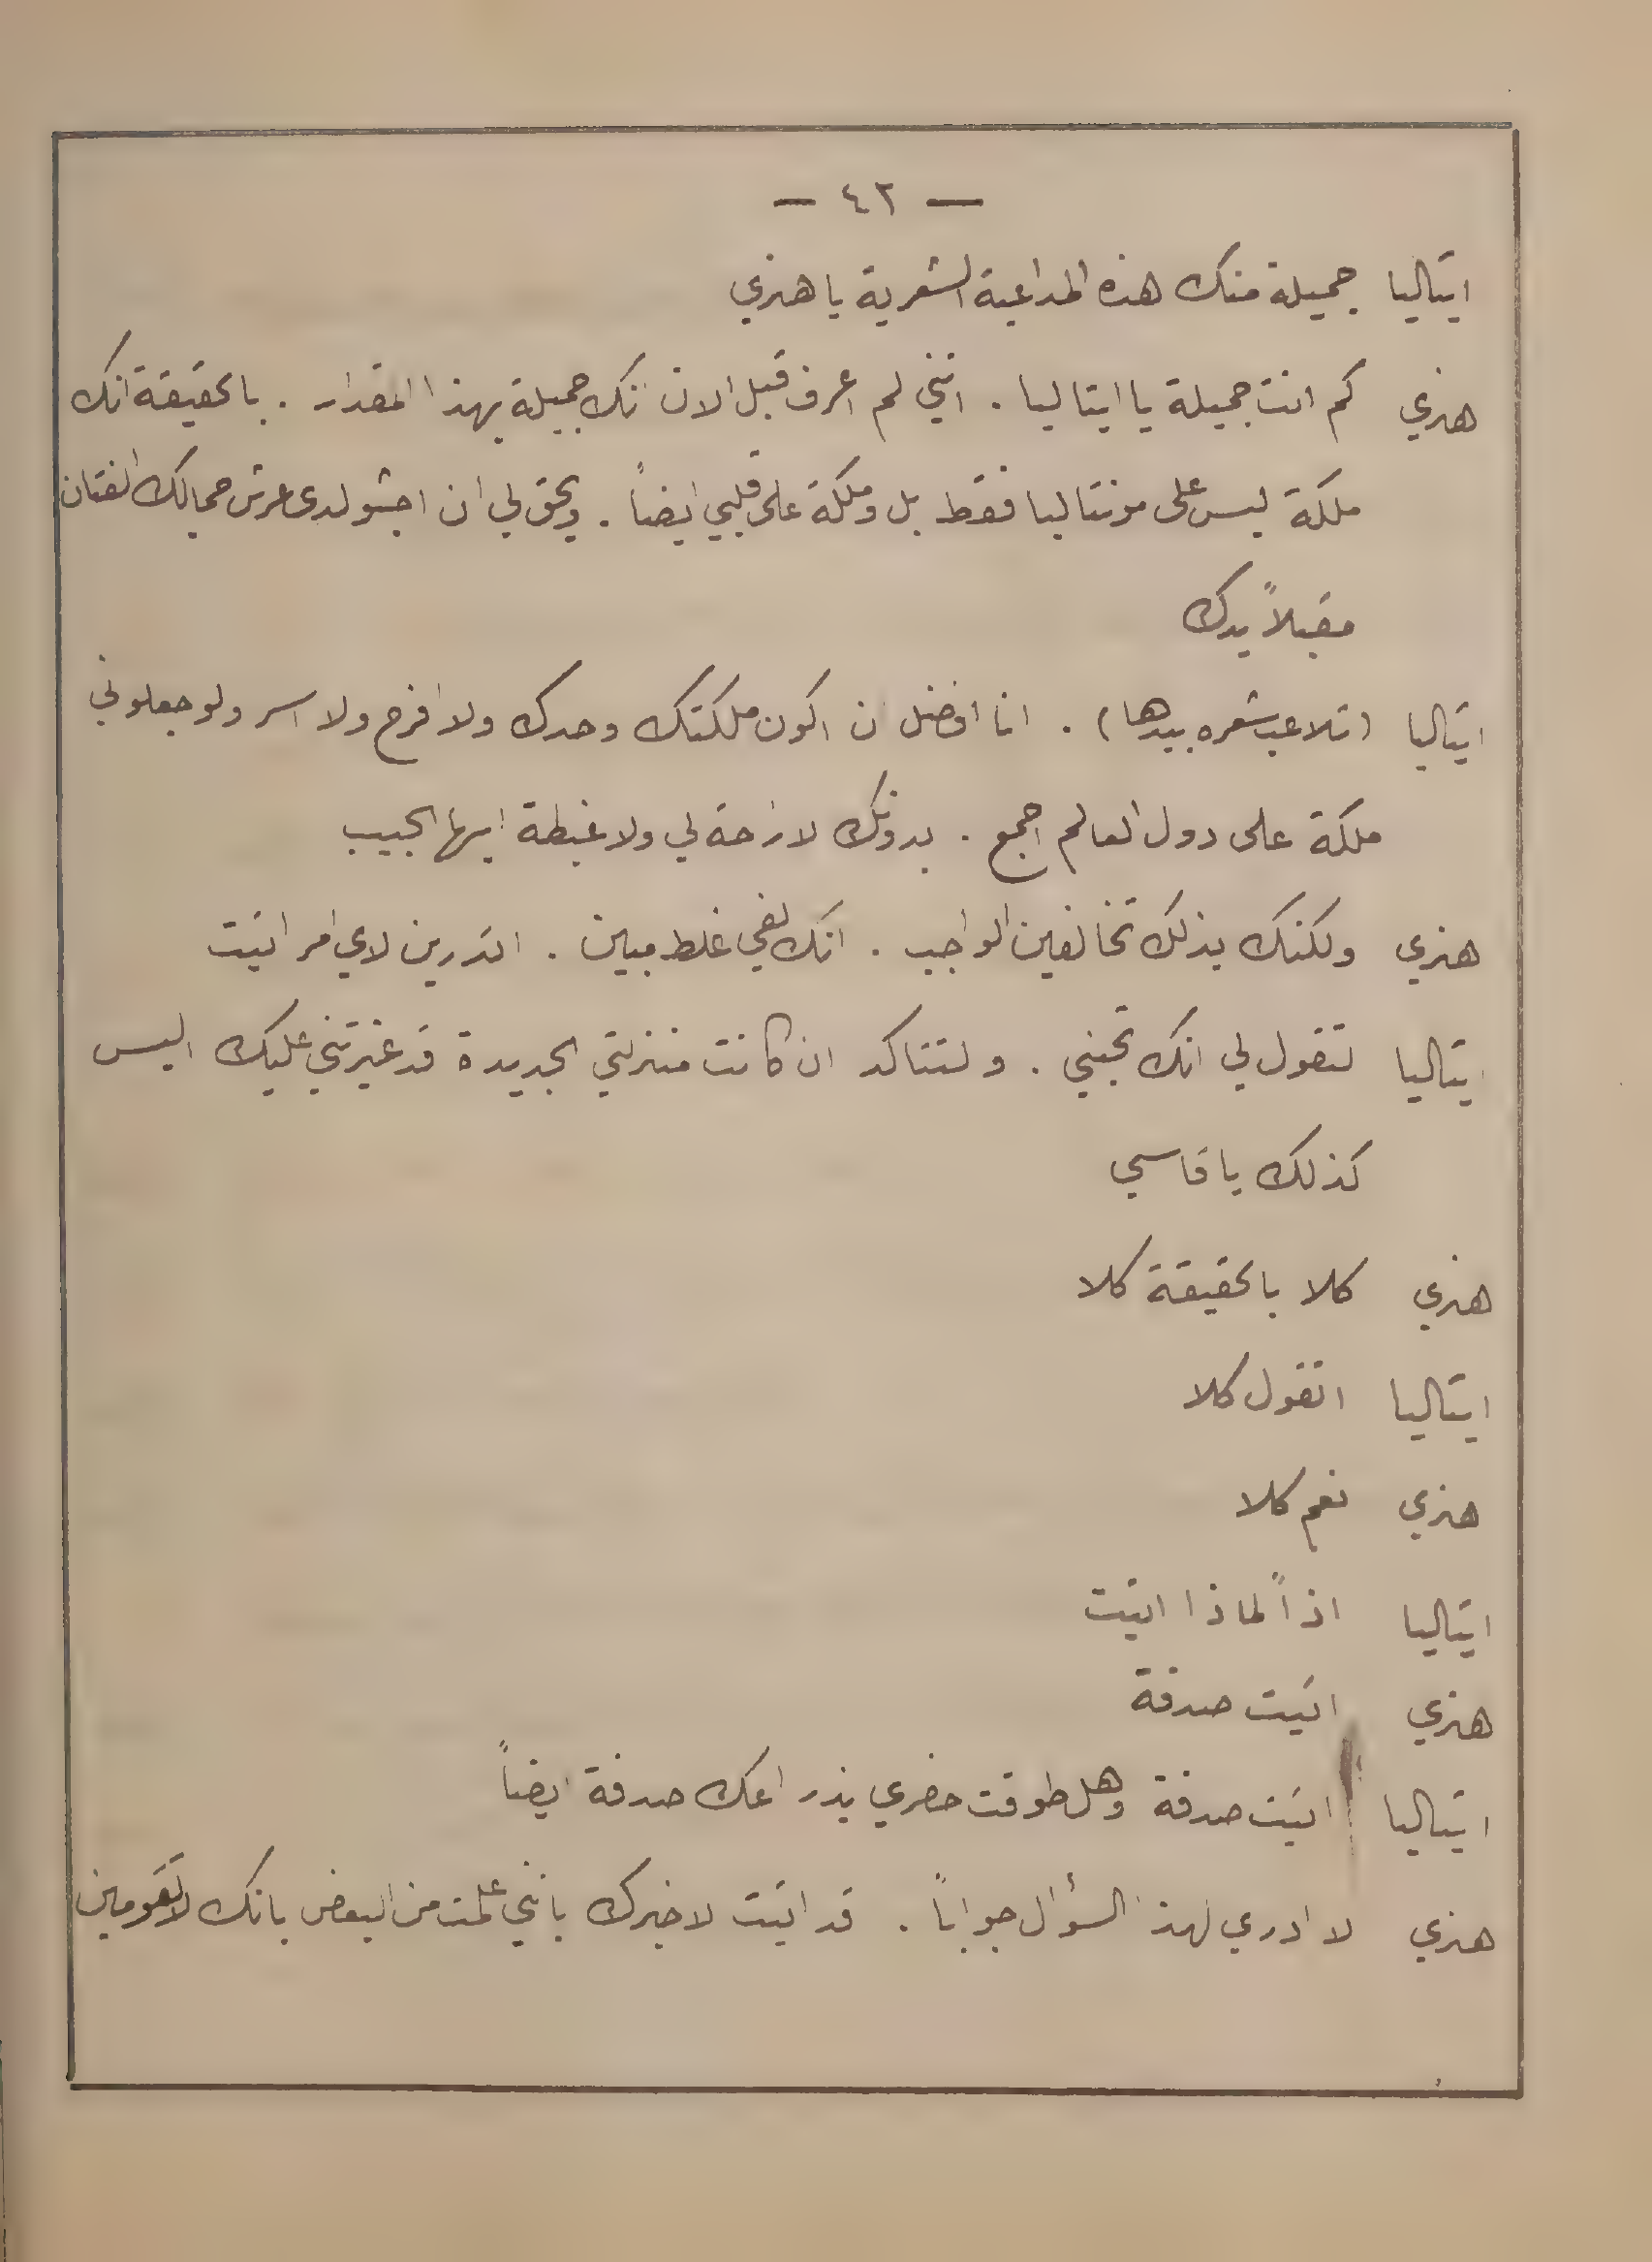 — ٤٢ —
ايتاليا جميلة منك هذه المداعبة الشعرية يا هنري
هنري كم انت جميلة يا ايتاليا . انني لم اعرف قبل الان انك جميلة بهذا المقدار . بالحقيقة انك
ملكة ليس على مونتاليا فقط بل وملكة على قلبي ايضاً . ويحق لي ان اجثو لدى عرش جمالك الفتان
مقبلاً يدك
ايتاليا (تلاعب شعره بيدها) . انا افضل ان اكون ملكتك وحدك ولا افرح ولا اسر ولو جعلوني
ملكة على دول العالم اجمع . بدونك لا راحة لي ولا غبطة ايها الحبيب
هنري ولكنك بذلك تخالفين الواجب . انك لفي غلط مبين . اتدرين لاي امر اتيت
ايتاليا لتقول لي انك تحبني . ولتتاكد ان كانت منزلتي الجديدة قد غيرتني عليك اليس
كذلك يا قاسي
هنري كلا بالحقيقة كلا
ايتاليا اتقول كلا
هنري نعم كلا
ايتاليا اذاً لماذا اتيت
هنري اتيت صدفة
ايتاليا اتيت صدفة وهل طوقت خصري بذراعك صدفة ايضاً
هنري لا ادري لهذا السؤال جواباً . قد اتيت لاخبرك بانني علمت من البعض بانك لا تقومين